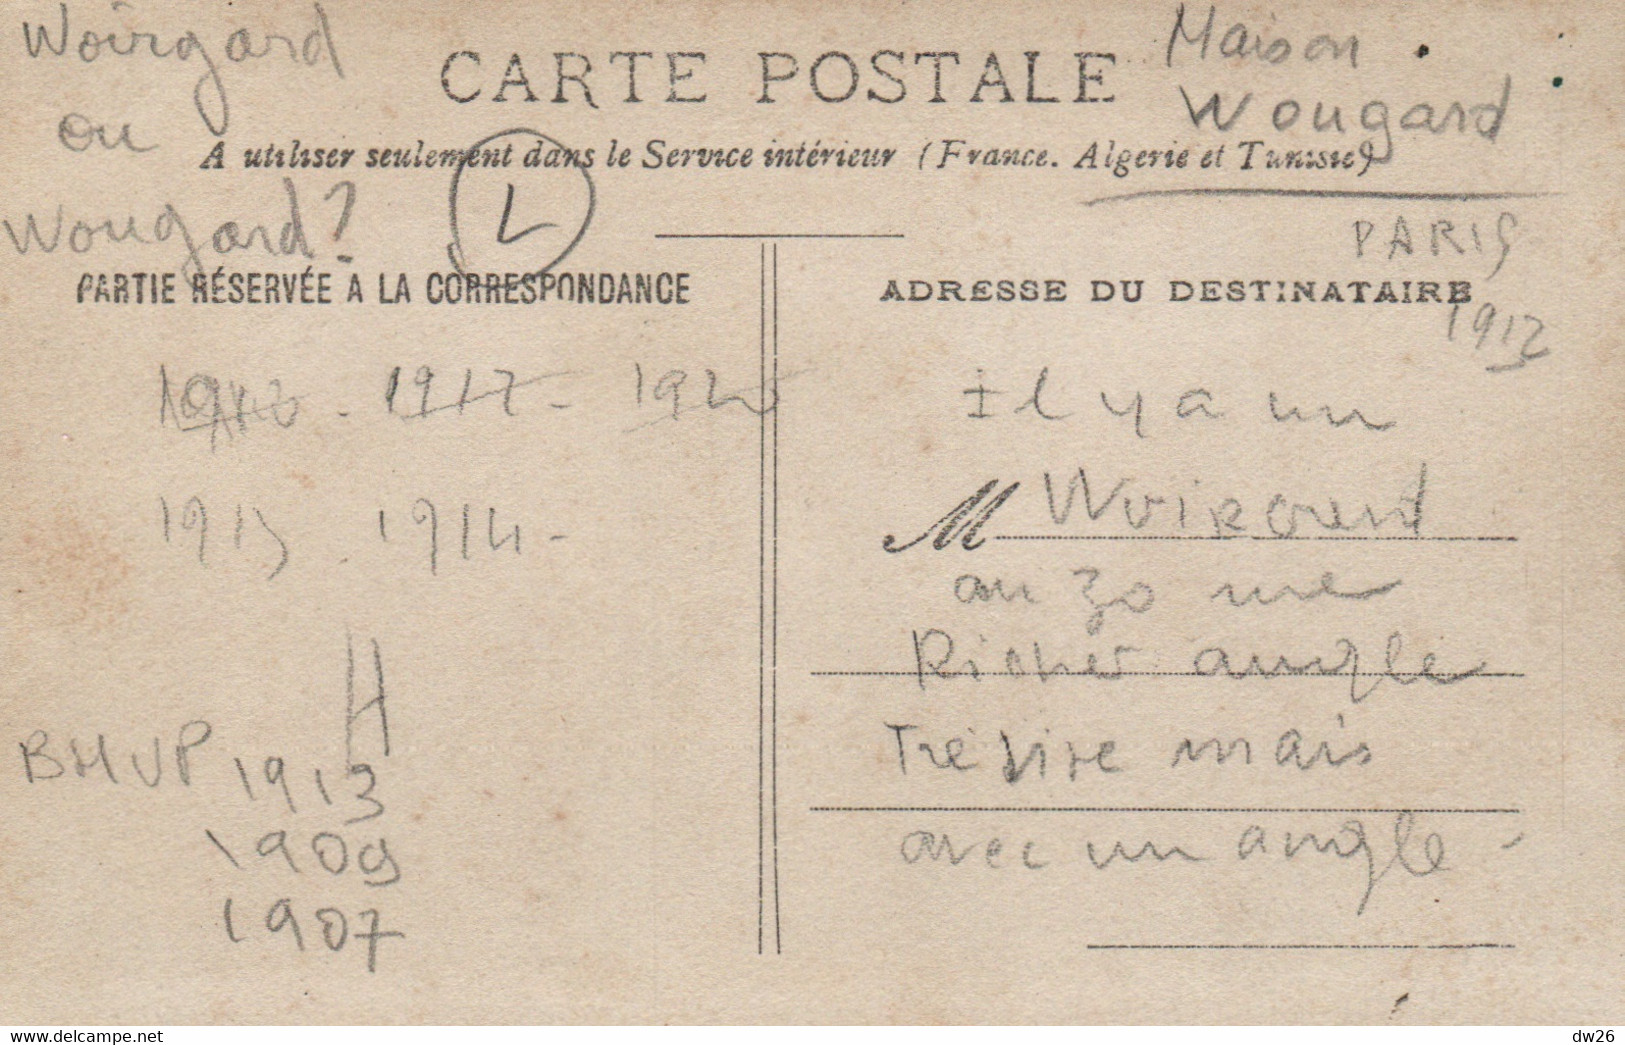 Woirgard
ou
Wougard?
CARTE POSTALE
Maison
Wougard
A utiliser seulement dans le Service intérieur (France. Algerie et Tunisie)
L
PARIS
1912
PARTIE RÉSERVÉE A LA CORRESPONDANCE
ADRESSE DU DESTINATAIRE
1917 -
1914 -
H
BHVP 1913
1909
1907
Il y a un
M
au 30 rue
Richer angle
Trévise mais
avec un angle -
delcampe.net
dw26